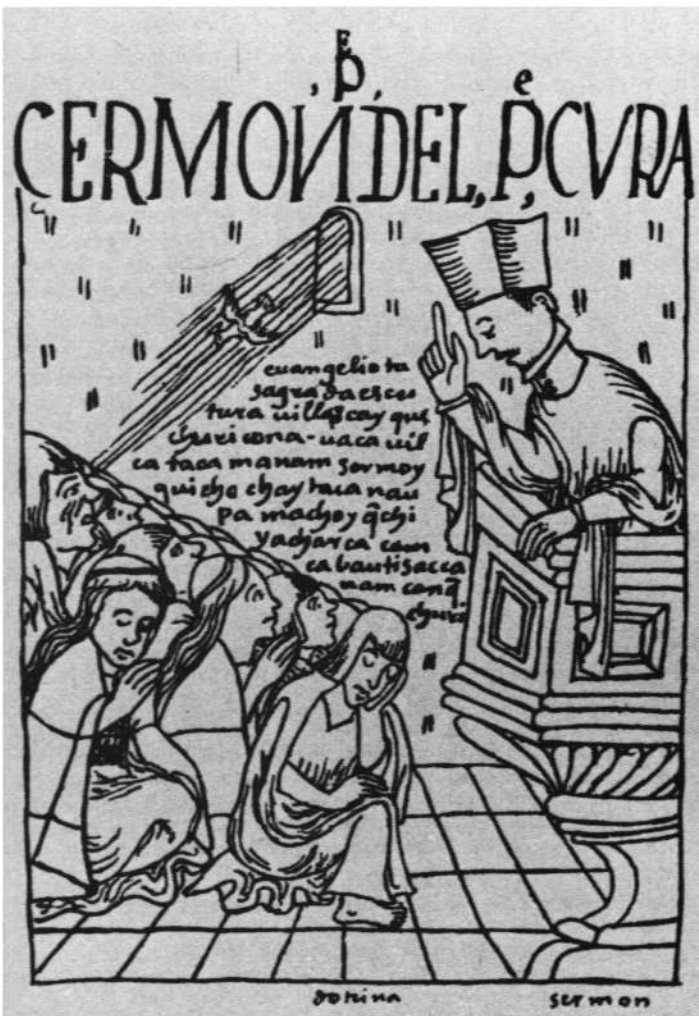 E
P
ÇERMON DEL, Pe, CVRA
euangelio ta
sagrada escri
tura uillascay que
churicona-uaca uil
ca taca manam sermoy
quicho chaytaca nau
pa machoy q̃chi
yacharca cam
ca bautisacca
nam canq̃
churi
dotrina sermon